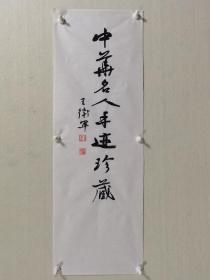 中華名人手迹珍藏
王衛军